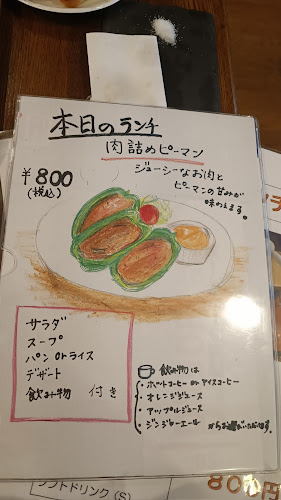 本日のランチ
肉詰めピーマン
¥800
(税込)
ジューシーなお肉と
ピーマンの甘みが
味わえます。
サラダ
スープ
パン orライス
デザート
飲み物 付き
飲み物は
・ホットコーヒー or アイスコーヒー
・オレンジジュース
・アップルジュース
・ジンジャーエール からお選びいただけます。
ソフトドリンク(S)
800円